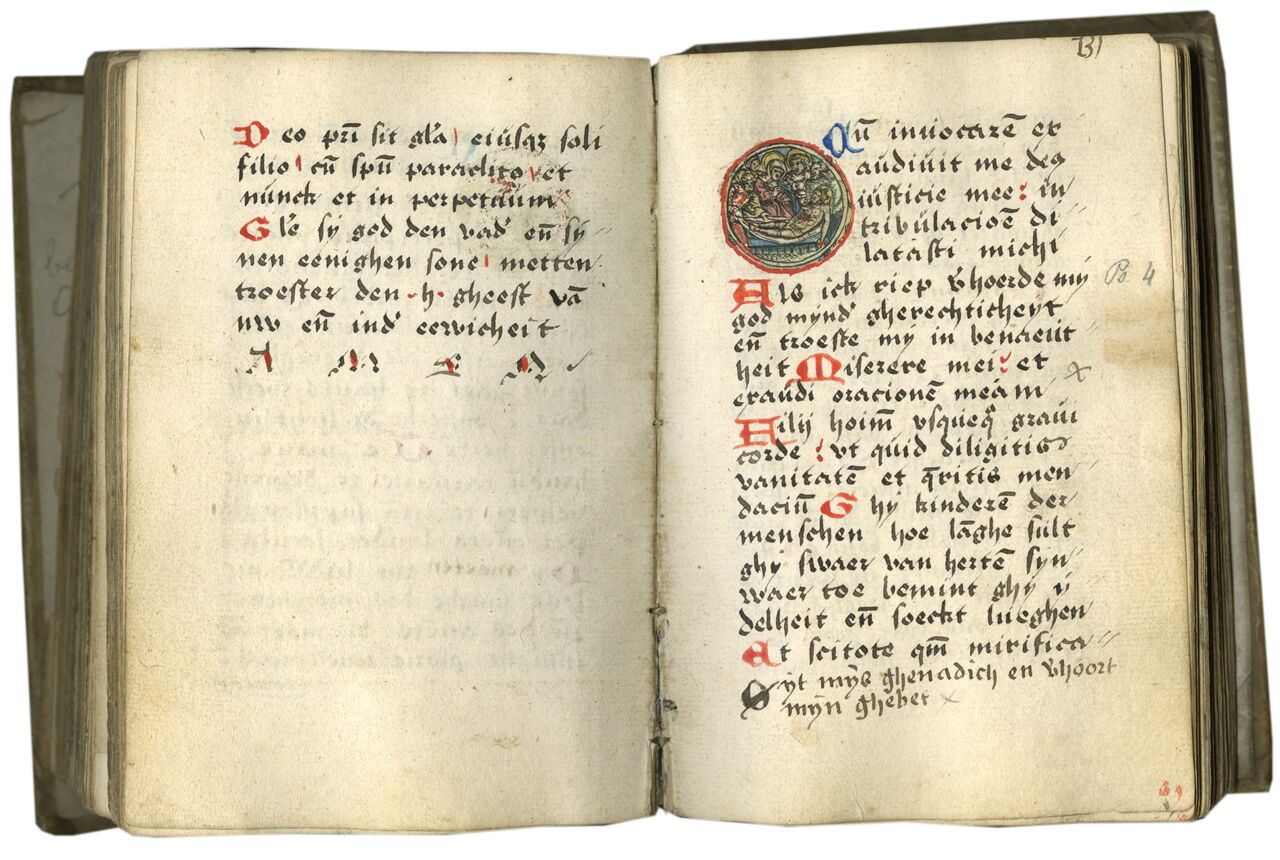 Deo pri̅ sit gl̅a eiusqꝫ soli
filio cu̅ spu̅ paraclito et
nunck et in perpetuum
Gl̕e sy god den vad̕ en̅ sy
nen eenighen sone metten
troester den ·h· gheest va̅
nw en̅ ind̕ eewicheit
A M E N
131
Cu̅ invocare̅ ex
audivit me deꝯ
iusticie mee: in
tribulacioe̅ di
latasti michi
Als ick riep v̕hoerde my
god mynd̕ gherechticheyt
en̅ troeste my in benaeut
heit Miserere mei: et
exaudi oracione̅ meam
Ps 4
x
Filij hoim̅ vsqueq̅ graui
corde: vt quid diligitis
vanitate̅ et q̅ritis men
daciu̅ Ghy kindere̅ der
menschen hoe la̅ghe sult
ghy swaer van herten syn
waer toe bemint ghy y
delheit en̅ soeckt lueghen
Et scitote qm̅ mirifica
Syt mys ghenadich en v̕hoort
mijn ghebet x
69